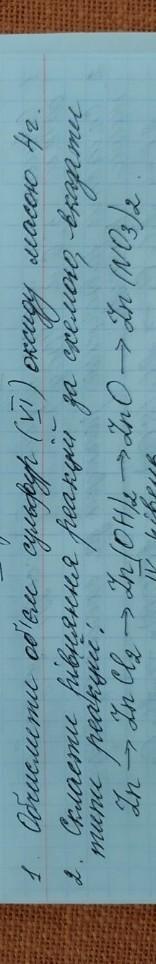 1. Обчислити об'єм сульфур (VI) оксиду масою 4г.
2. Скласти рівняння реакцій за схемою, вказати
типи реакцій:
Zn → ZnCl₂ → Zn(OH)₂ → ZnO → Zn(NO₃)₂.